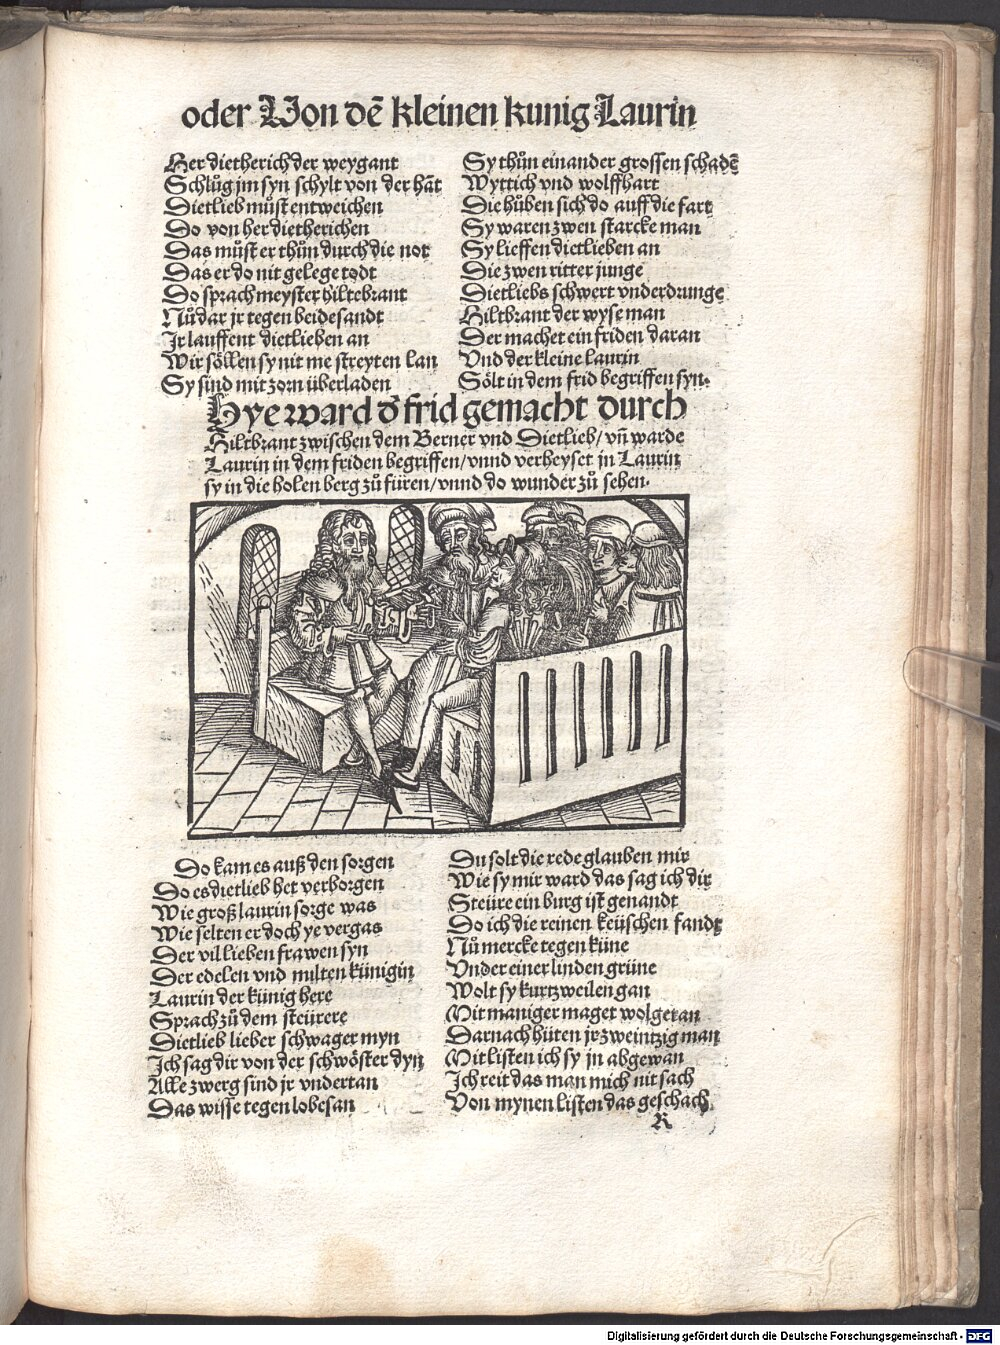 oder Von dē kleinen kunig Laurin
Her dietherich der weygant
Schlůg jm syn schylt von der hāt
Dietlieb můst entweichen
Do von her dietherichen
Das můst er thůn durch die not
Das er do nit gelege todt
Do sprach meyster hiltebrant
Nů dar jr tegen beidesandt
Jr lauffent dietlieben an
Wir söllen sy nit me streyten lan
Sy sind mit zorn überladen
Sy thůn einander grossen schadē
Wyttich vnd wolffhart
Die hůben sich do auff die fart
Sy waren zwen starcke man
Sy lieffen dietlieben an
Die zwen ritter junge
Dietliebs schwert vnderdrunge
Hiltbrant der wyse man
Der machet ein friden daran
Vnd der kleine laurin
Sölt in dem frid begriffen syn.
Hye ward d̄ frid gemacht durch
Hiltbrant zwischen dem Berner vnd Dietlieb/ vn̄ warde
Laurin in dem friden begriffen/ vnnd verheyset jn Laurin
sy in die holen berg zů füren/ vnnd do wunder zů sehen.
Do kam es auß den sorgen
Do es dietlieb het verborgen
Wie groß laurin sorge was
Wie selten er doch ye vergas
Der vil lieben frawen syn
Der edelen vnd milten künigin
Laurin der künig here
Sprach zů dem steürere
Dietlieb lieber schwager myn
Ich sag dir von der schwöster dyn
Alle zwerg sind jr vndertan
Das wisse tegen lobesan
Du solt die rede glauben mir
Wie sy mir ward das sag ich dir
Steüre ein burg ist genandt
Do ich die reinen keüschen fandt
Nů mercke tegen küne
Vnder einer linden grüne
Wolt sy kurtzweilen gan
Mit maniger maget wolgetan
Darnach hüten jr zweintzig man
Mit listen ich sy jn abgewan
Ich reit das man mich nit sach
Von mynen listen das geschach
R
Digitalisierung gefördert durch die Deutsche Forschungsgemeinschaft - DFG